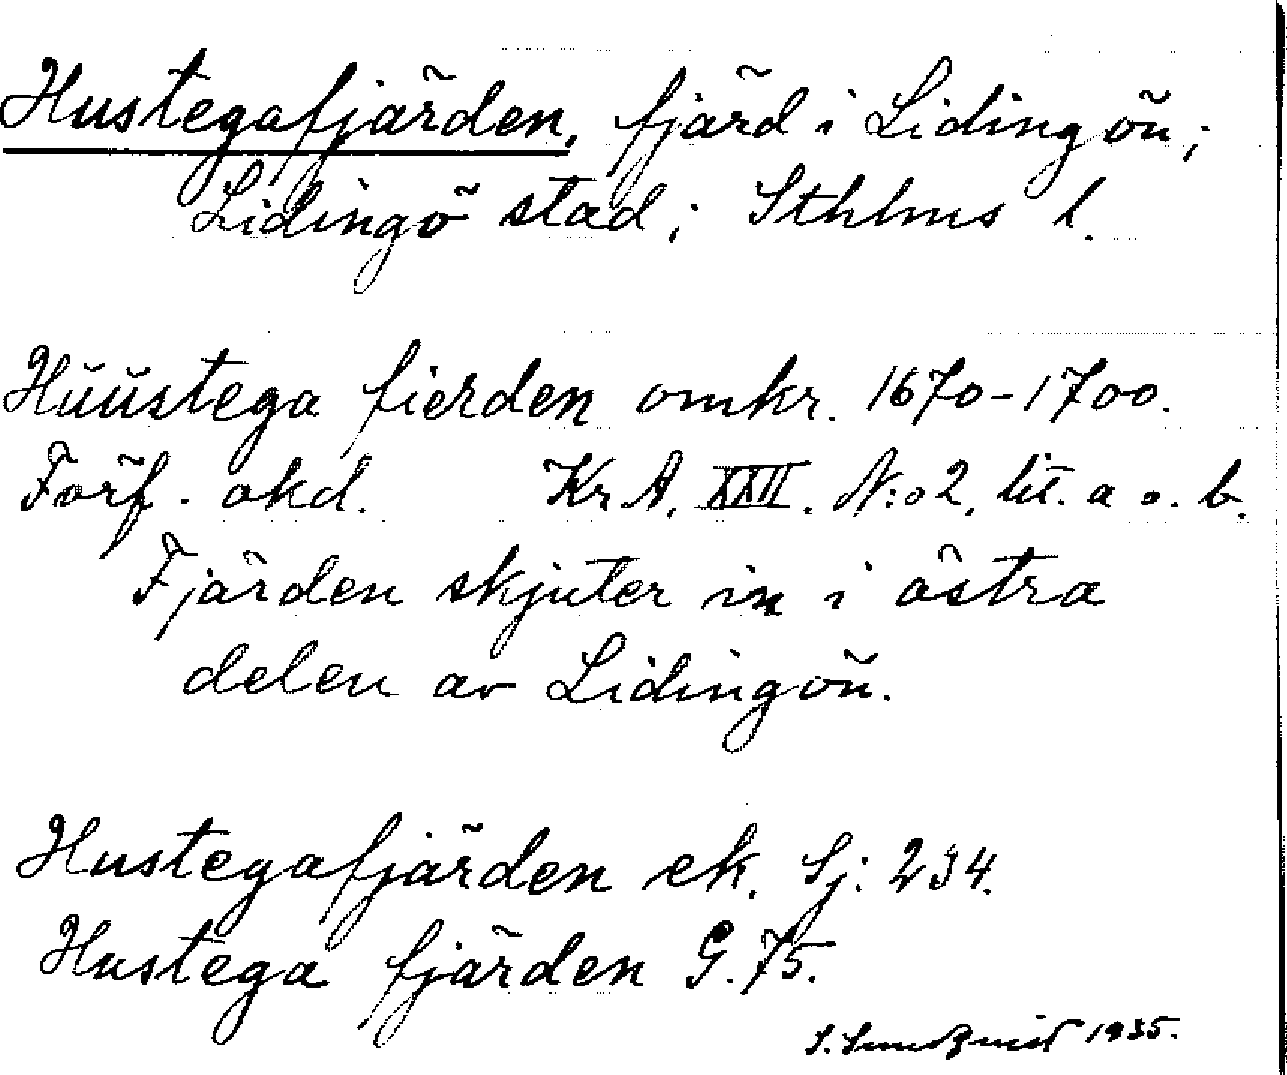 Hustegafjärden, fjärd i Lidingön;
Lidingö stad; Sthlms l.
Hŭŭstega fierden omkr. 1670-1700.
Förf. okd. Kr A. XXII. N:o 2, lit. a o. b.
Fjärden skjuter in i östra
delen av Lidingön.
Hustegafjärden ek. Sj: 234.
Hustega fjärden G. 75.
S. Sundquist 1935.